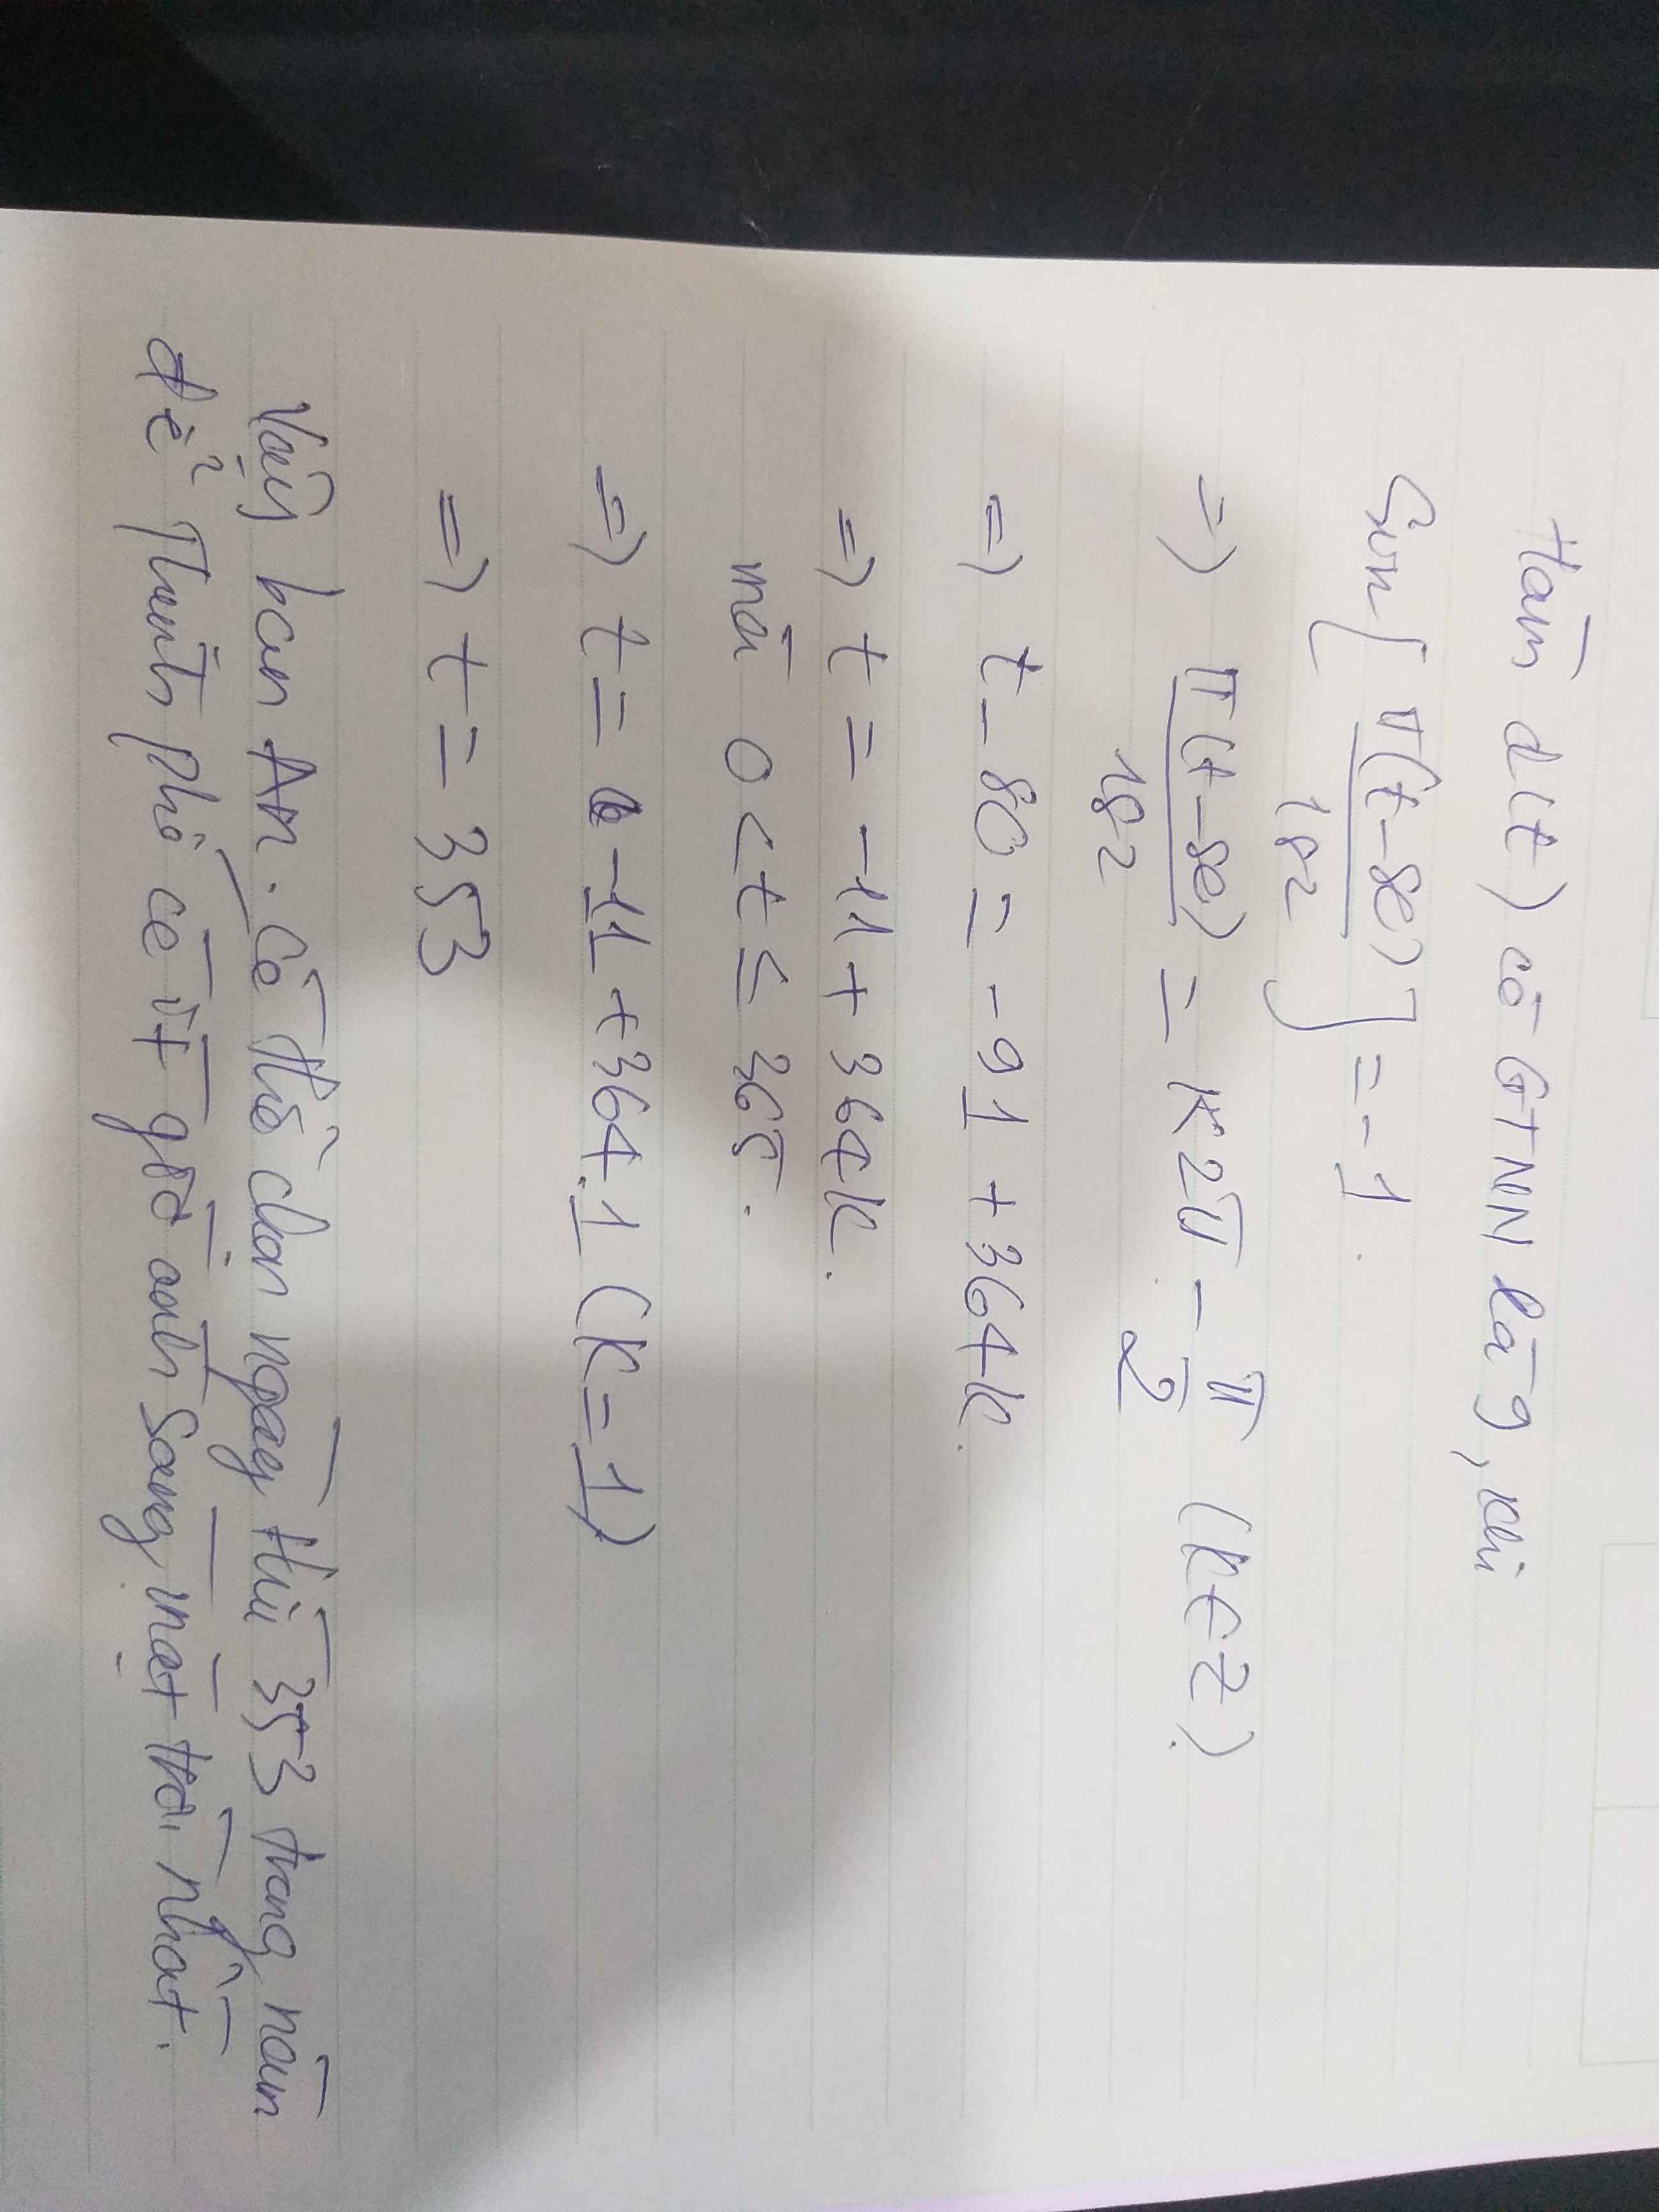 Hàm d(t) có GTNN là 9, khi
Sin[π(t-80)/182] = -1.
=) π(t-80)/182 = k2π - π/2 (k∈Z).
=) t-80 = -91 + 364k.
=) t = -11 + 364k.
mà 0 < t ≤ 365.
=) t = -11 + 364.1 (k=1)
=) t = 353
Vậy bạn An. Có thể chọn ngày thứ 353 trong năm
để Thành phố có ít giờ ánh sáng mặt trời nhất.